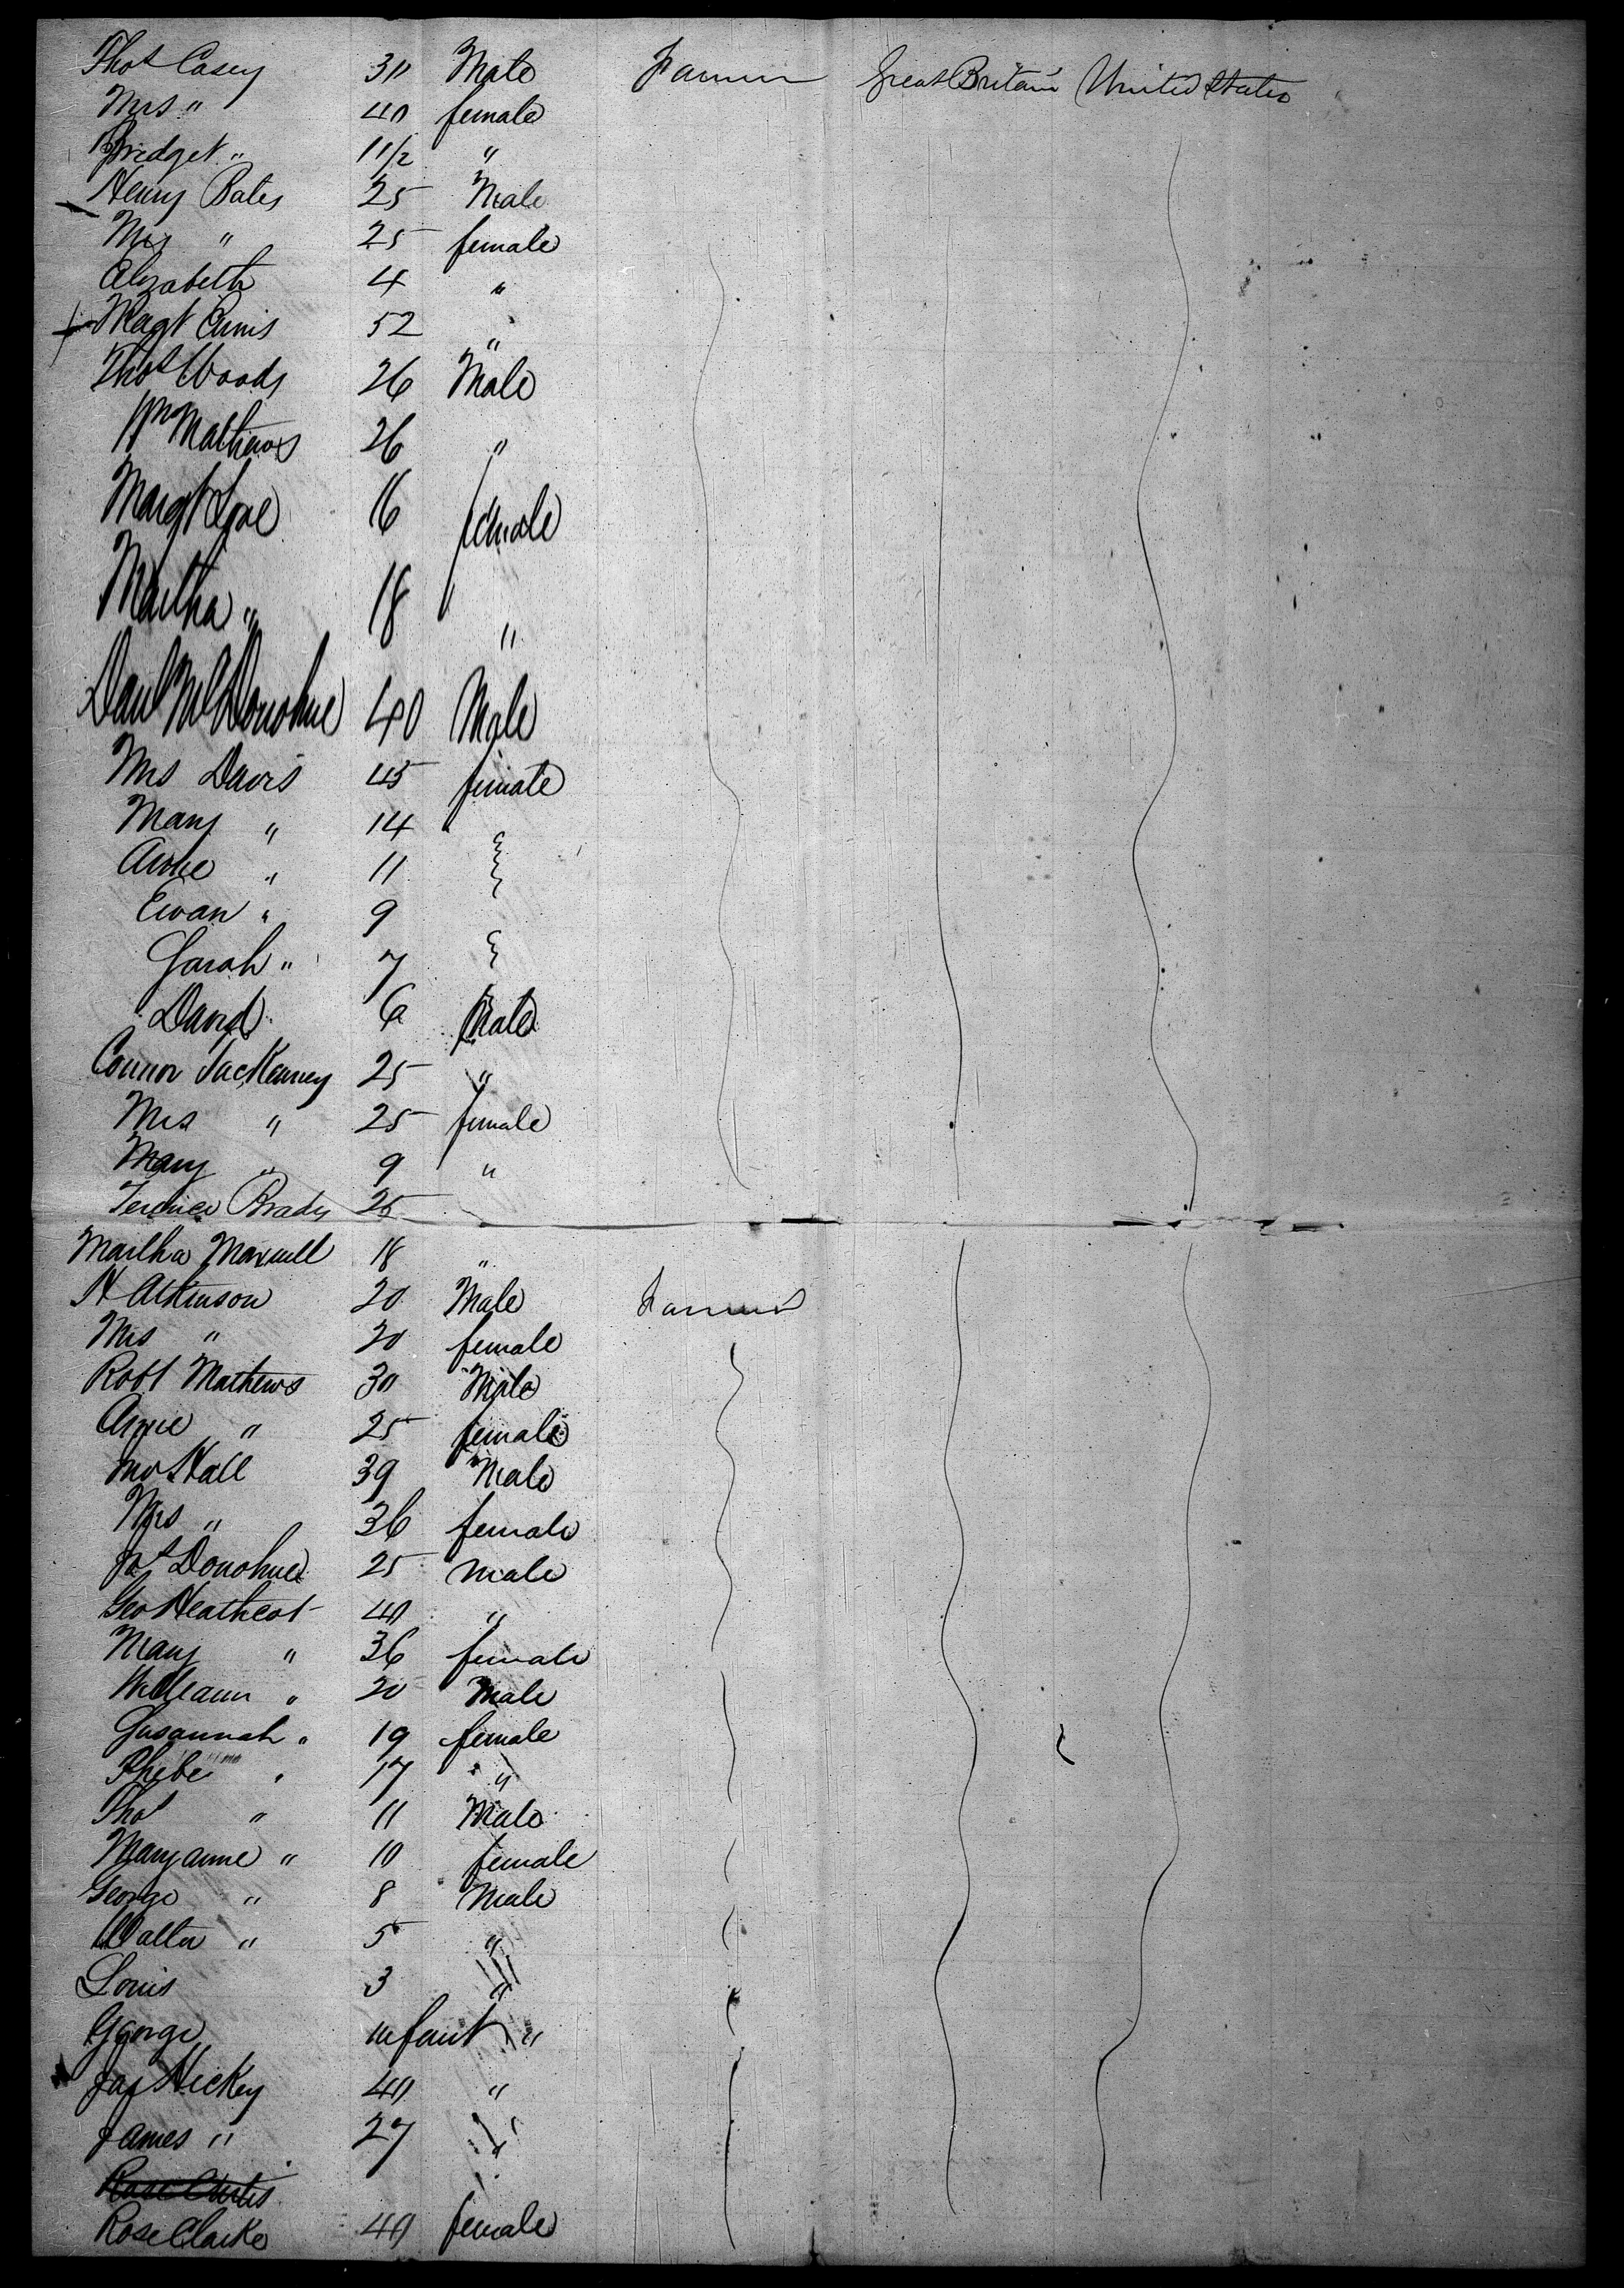 Thos Casey 30 Male Farmer Great Britain United States
Mrs " 40 female
Bridget " 11/2 "
Henry Bates 25 Male
Mrs " 25 female
Elizabeth 4 "
Magt Ennis 52 "
Thos Woods 26 Male
Wm Mathews 26 "
Margt 16 female
Martha " 18 "
Danl McDonohue 40 Male
Mrs Davis 45 female
Mary " 14
Anne " 11
Ewan " 9
Sarah " 7
David 6 Male
Connor 25 "
Mrs " 25 female
Mary " 9 "
Terence Brady 25
Martha Maxwell 18 "
H Atkinson 20 Male Farmer
Mrs " 20 female
Robt Mathews 30 Male
Anne " 25 female
Hall 39 Male
Mrs " 36 female
Jas Donohue 25 Male
Geo Heathcot 40 "
Mary " 36 female
William " 20 Male
Susannah " 19 female
Phebe " 17 "
Thos " 11 Male
Maryanne " 10 female
George " 8 Male
Walter " 5 "
Louis 3 "
George infant "
Jas Hickey 40 "
James " 27 "
Rose Curtis
Rose Clarke 40 female